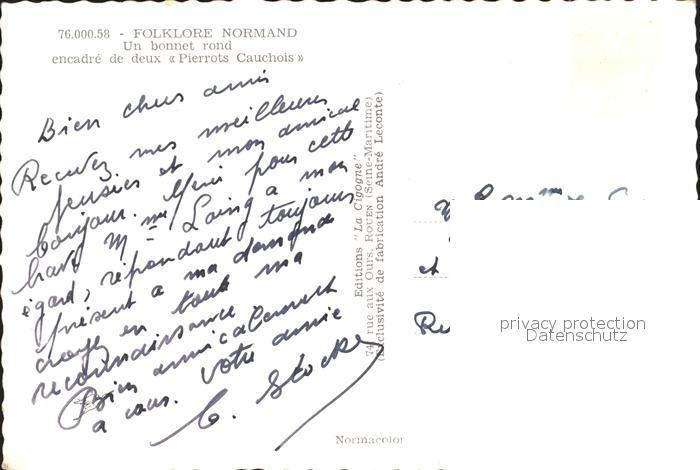 76.000.58 - FOLKLORE NORMAND
Un bonnet rond
encadré de deux « Pierrots Cauchois »
Bien chers amis
Recevez mes meilleures
pensées et mon amical
bonjour. Merci pour cette
Mme Loing a mon
égard, répondant toujours
présent a ma demande
croyez en toute ma
reconnaissance
Bien amicalement
a vous. Votre amie
Editions "La Cigogne"
74, rue aux Ours, ROUEN (Seine-Maritime)
(Exclusivité de fabrication André Leconte)
et
privacy protection
Datenschutz
Normacolor